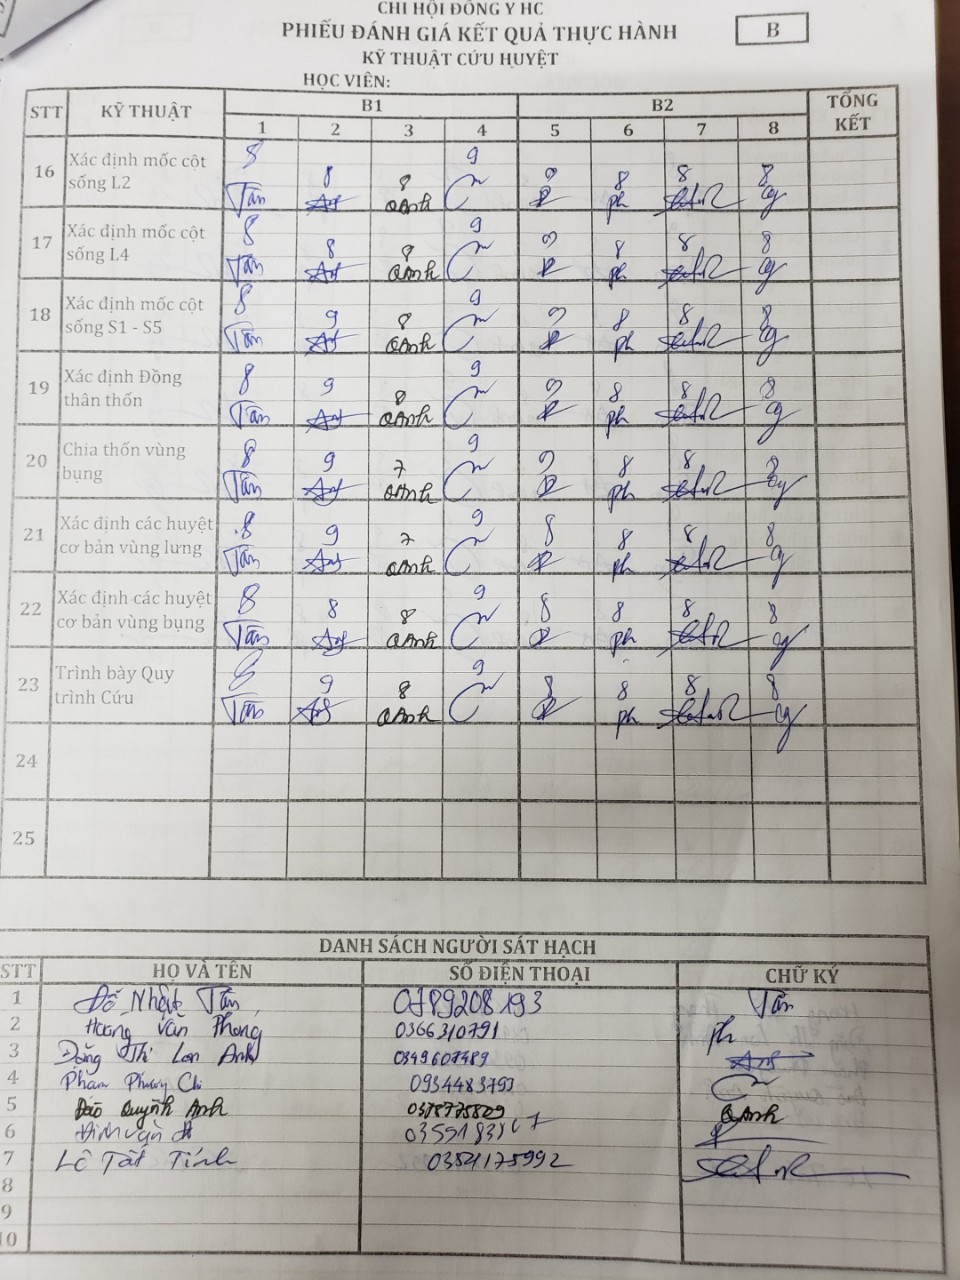 CHI HỘI ĐÔNG Y HC
PHIẾU ĐÁNH GIÁ KẾT QUẢ THỰC HÀNH
B
KỸ THUẬT CỨU HUYỆT
HỌC VIÊN:
STT KỸ THUẬT B1 B2 TỔNG KẾT
1 2 3 4 5 6 7 8
16 Xác định mốc cột sống L2
8 8 8 9 9 8 8 8
Tân QAnh ph
17 Xác định mốc cột sống L4
8 8 8 9 9 8 8 8
Tân QAnh ph
18 Xác định mốc cột sống S1 - S5
8 9 8 9 9 8 8 8
Tân QAnh ph
19 Xác định Đồng thân thốn
8 9 8 9 9 8 8 8
Tân QAnh ph
20 Chia thốn vùng bụng
8 9 7 9 9 8 8 8
Tân QAnh ph
21 Xác định các huyệt cơ bản vùng lưng
8 9 7 9 8 8 8 8
Tân QAnh ph
22 Xác định các huyệt cơ bản vùng bụng
8 8 8 9 8 8 8 8
Tân QAnh ph
23 Trình bày Quy trình Cứu
8 9 8 9 8 8 8 8
Tân QAnh ph
24
25
DANH SÁCH NGƯỜI SÁT HẠCH
STT HỌ VÀ TÊN SỐ ĐIỆN THOẠI CHỮ KÝ
1 Đỗ Nhật Tân 0789208193 Tân
2 Hoàng Văn Phong 0366310791 ph
3 Đặng Thị Lan Anh 0349607489
4 Phạm Phương Chi 0934483793
5 Đào Quỳnh Anh 0378775829 QAnh
6 Đinh Văn
7 Lê Tất Tính 0354175992
8
9
10